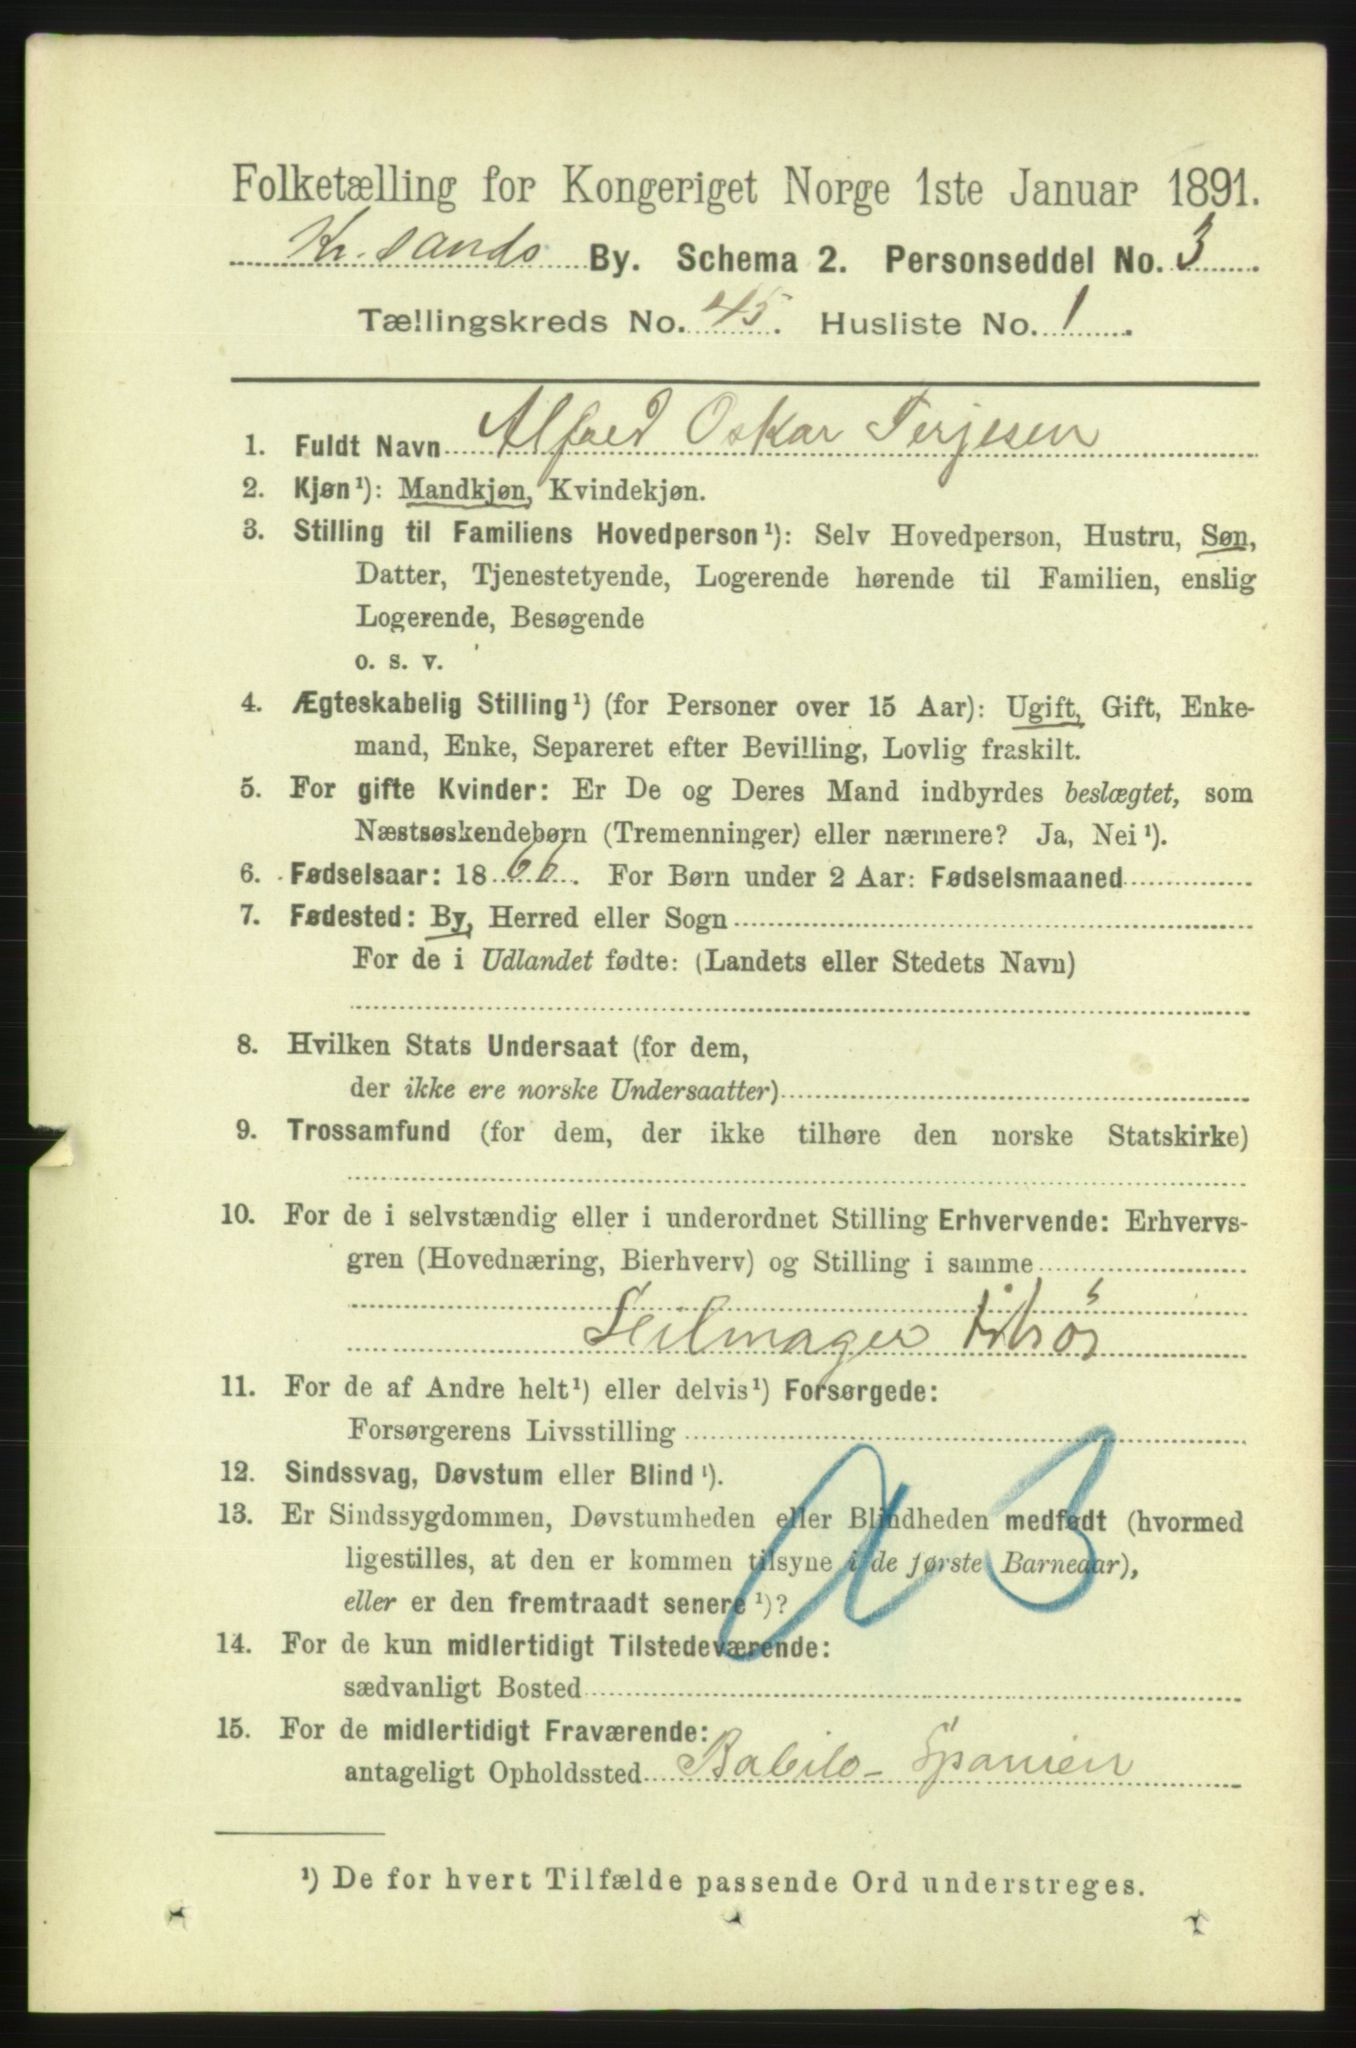 Folketælling for Kongeriget Norge 1ste Januar 1891.
Kr.sands By. Schema 2. Personseddel No. 3.
Tællingskreds No. 45. Husliste No. 1.
1. Fuldt Navn Alfred Oskar Terjesen
2. Kjøn¹): Mandkjøn, Kvindekjøn.
3. Stilling til Familiens Hovedperson¹): Selv Hovedperson, Hustru, Søn,
Datter, Tjenestetyende, Logerende hørende til Familien, enslig
Logerende, Besøgende
o. s. v.
4. Ægteskabelig Stilling¹) (for Personer over 15 Aar): Ugift, Gift, Enke-
mand, Enke, Separeret efter Bevilling, Lovlig fraskilt.
5. For gifte Kvinder: Er De og Deres Mand indbyrdes beslægtet, som
Næstsøskendebørn (Tremenninger) eller nærmere? Ja, Nei¹).
6. Fødselsaar: 1866. For Børn under 2 Aar: Fødselsmaaned
7. Fødested: By, Herred eller Sogn
For de i Udlandet fødte: (Landets eller Stedets Navn)
8. Hvilken Stats Undersaat (for dem,
der ikke ere norske Undersaatter)
9. Trossamfund (for dem, der ikke tilhøre den norske Statskirke)
10. For de i selvstændig eller i underordnet Stilling Erhvervende: Erhvervs-
gren (Hovednæring, Bierhverv) og Stilling i samme
Seilmager tilsøs
11. For de af Andre helt¹) eller delvis¹) Forsørgede:
Forsørgerens Livsstilling
12. Sindssvag, Døvstum eller Blind¹).
13. Er Sindssygdommen, Døvstumheden eller Blindheden medfødt (hvormed
ligestilles, at den er kommen tilsyne i de første Barneaar),
eller er den fremtraadt senere¹)?
14. For de kun midlertidigt Tilstedeværende:
sædvanligt Bosted
15. For de midlertidigt Fraværende:
antageligt Opholdssted Babilo - Spanien
¹) De for hvert Tilfælde passende Ord understreges.